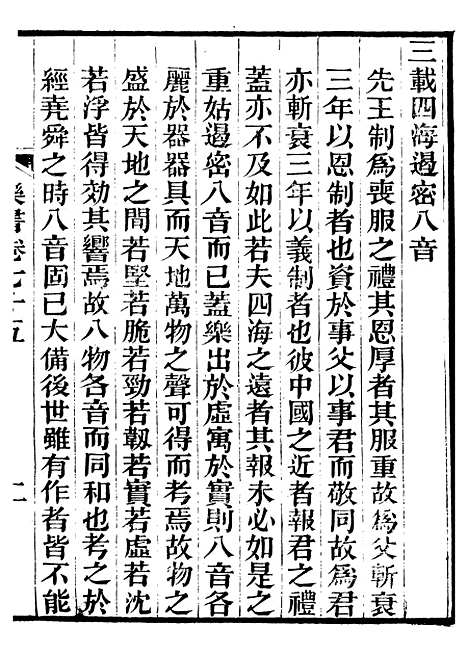 三載四海遏密八音
先王制爲喪服之禮其恩厚者其服重故爲父斬衰
三年以恩制者也資於事父以事君而敬同故爲君
亦斬衰三年以義制者也彼中國之近者報君之禮
蓋亦不及如此若夫四海之遠者其報未必如是之
重姑遏密八音而已蓋樂出於虛寓於實則八音各
麗於器器具而天地萬物之聲可得而考焉故物之
盛於天地之間若堅若脆若勁若韌若實若虛若沈
若浮皆得効其響焉故八物各音而同和也考之於
經堯舜之時八音固已大備後世雖有作者皆不能
樂書卷七十五
二